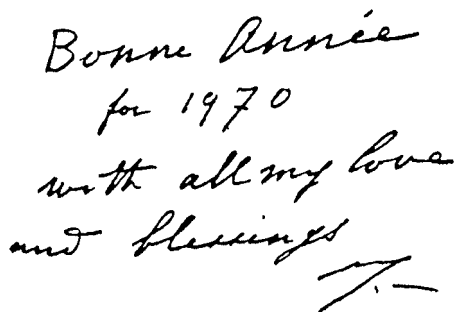 Bonne Année
for 1970
with all my love
and blessings